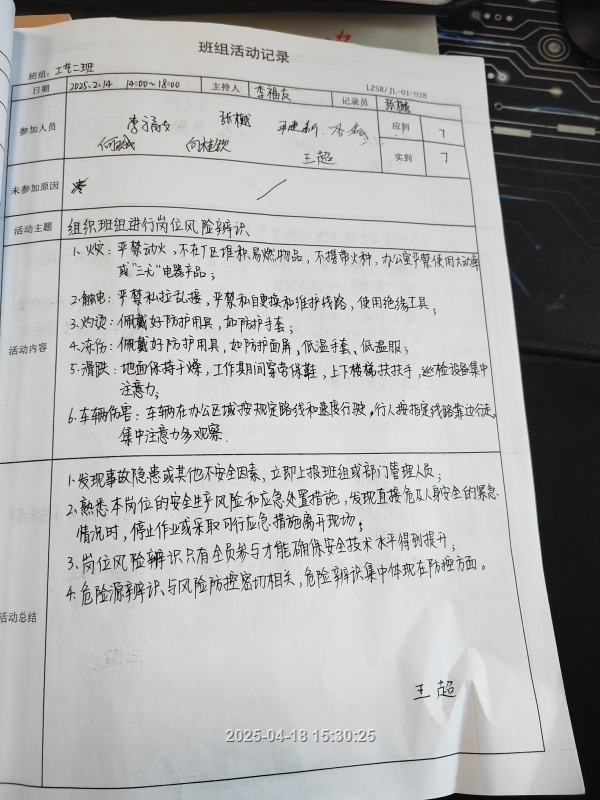 班组活动记录
班组: 工艺二班
LZSR/JL-01-028
日期 2025.2.14 14:00~18:00 主持人 李福友 记录员 张樾
参加人员 李福友 张樾 应到 7
何斌 向桂钦 王超 实到 7
未参加原因
活动主题 组织班组进行岗位风险辨识
活动内容
1、火灾：严禁动火，不在厂区堆积易燃物品，不携带火种，办公室严禁使用大功率
或"三无"电器产品；
2.触电：严禁私拉乱接，严禁私自更换和维护线路，使用绝缘工具；
3.灼烫：佩戴好防护用具，如防护手套；
4.冻伤：佩戴好防护用具，如防护面屏，低温手套、低温服；
5.滑跌：地面保持干燥，工作期间穿劳保鞋，上下楼梯扶扶手，巡检设备集中
注意力；
6.车辆伤害：车辆在办公区域按规定路线和速度行驶，行人按指定线路靠边行走，
集中注意力多观察.
活动总结
1.发现事故隐患或其他不安全因素，立即上报班组或部门管理人员；
2.熟悉本岗位的安全生产风险和应急处置措施，发现直接危及人身安全的紧急
情况时，停止作业或采取可行应急措施离开现场；
3.岗位风险辨识只有全员参与才能确保安全技术水平得到提升；
4.危险源辨识与风险防控密切相关，危险辨识集中体现在防控方面。
王超
2025-04-18 15:30:25